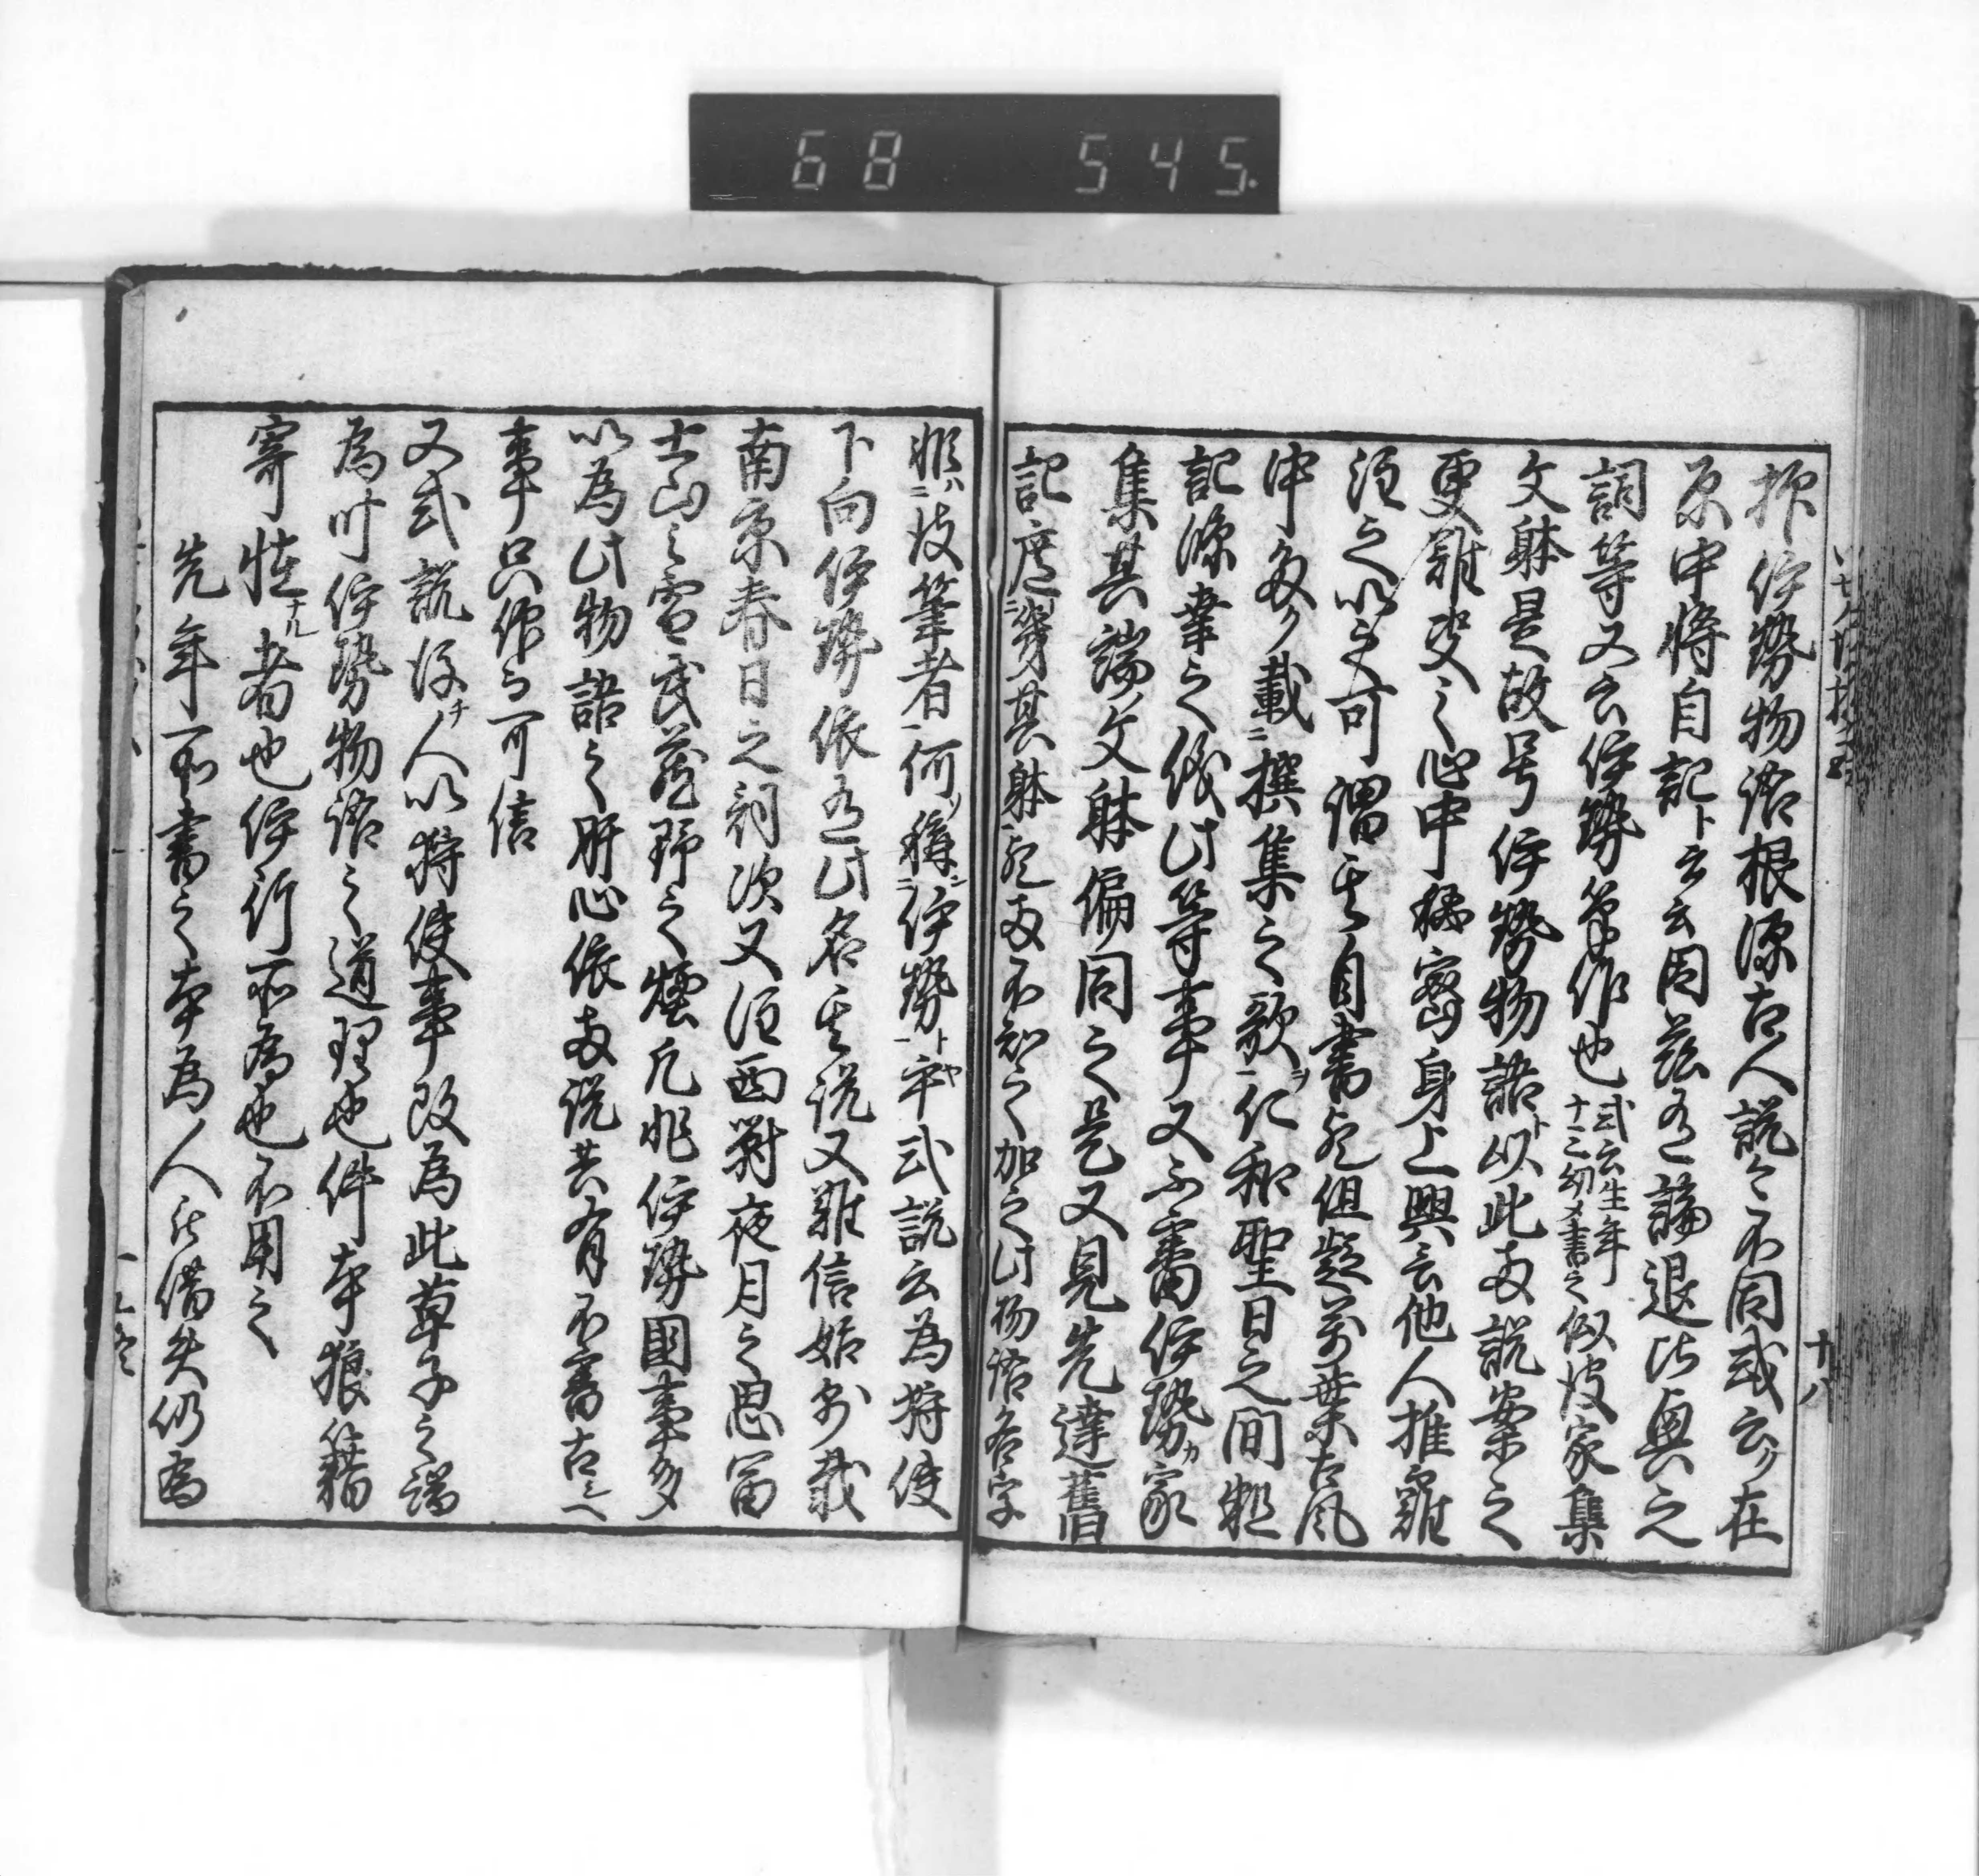 68 545.
抑伊勢物語根源古人説々不同或云在
原中将自記ト云云因茲有論退比興之
詞等又云伊勢筆作也或云生年十三幼メ書之似彼家集
文躰是故号伊勢物語ト以此両説案之
更難決之心中秘密身上興言他人推難
注之以之可謂其自書歟但疑万葉古風
中多ク載撰集之歌ヲ仁和聖日之間粗
記源章之儀此等事又不審伊勢カ家
集其端ノ文躰偏同之是又見先達旧
記庶幾其躰歟両不知之加之此物語名字
非ハ彼筆者何ソ称伊勢トヤ乎或説云為狩使
下向伊勢依有此名其説又難信始如載
南京春日之詞次又注西対夜月之思冨
士山之雪武蔵野之煙凡非伊勢国事多
以為此物語之肝心依両説共有不審古之
事只作可信
又或説後ナ人以狩使事改為此草子之端
為叶伊勢物語之道理也件本狼藉
寄恠ナル者也伊行所為也不用之
先年所書之本為人被借失仍為
十八